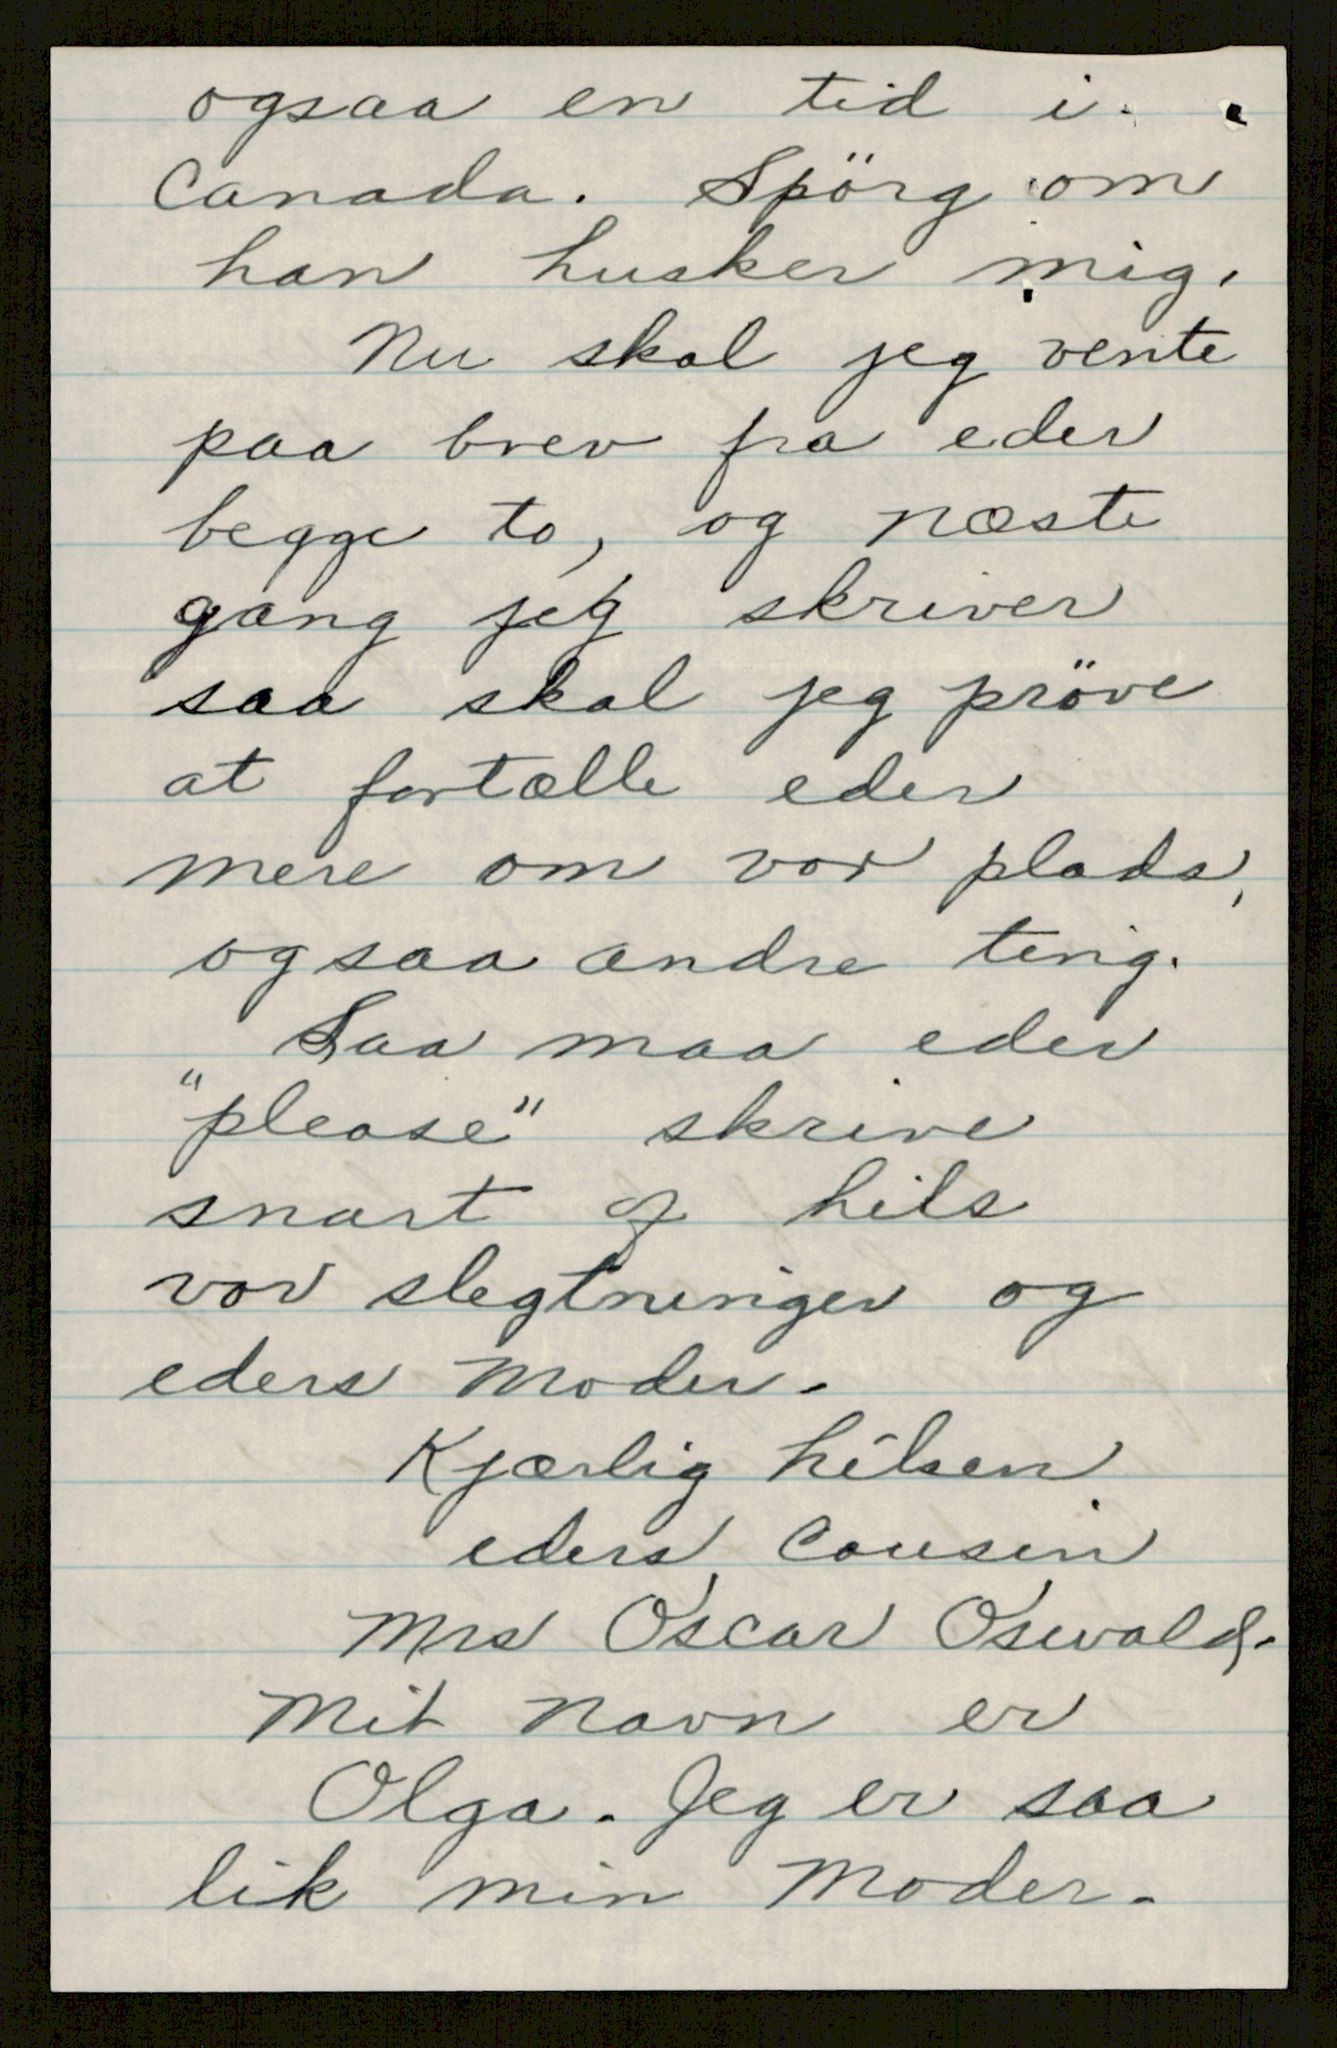 ogsaa en tid i
Canada. Spörg om
han husker mig.
Nu skal jeg vente
paa brev fra eder
begge to, og næste
gang jeg skriver
saa skal jeg pröve
at fortælle eder
mere om vor plads,
ogsaa andre ting.
Saa maa eder
"please" skrive
snart og hils
vor slegtninger og
eders Moder.
Kjærlig hilsen
eders Cousin
Mrs Oscar Oswald.
Mit Navn er
Olga. Jeg er saa
lik min Moder.